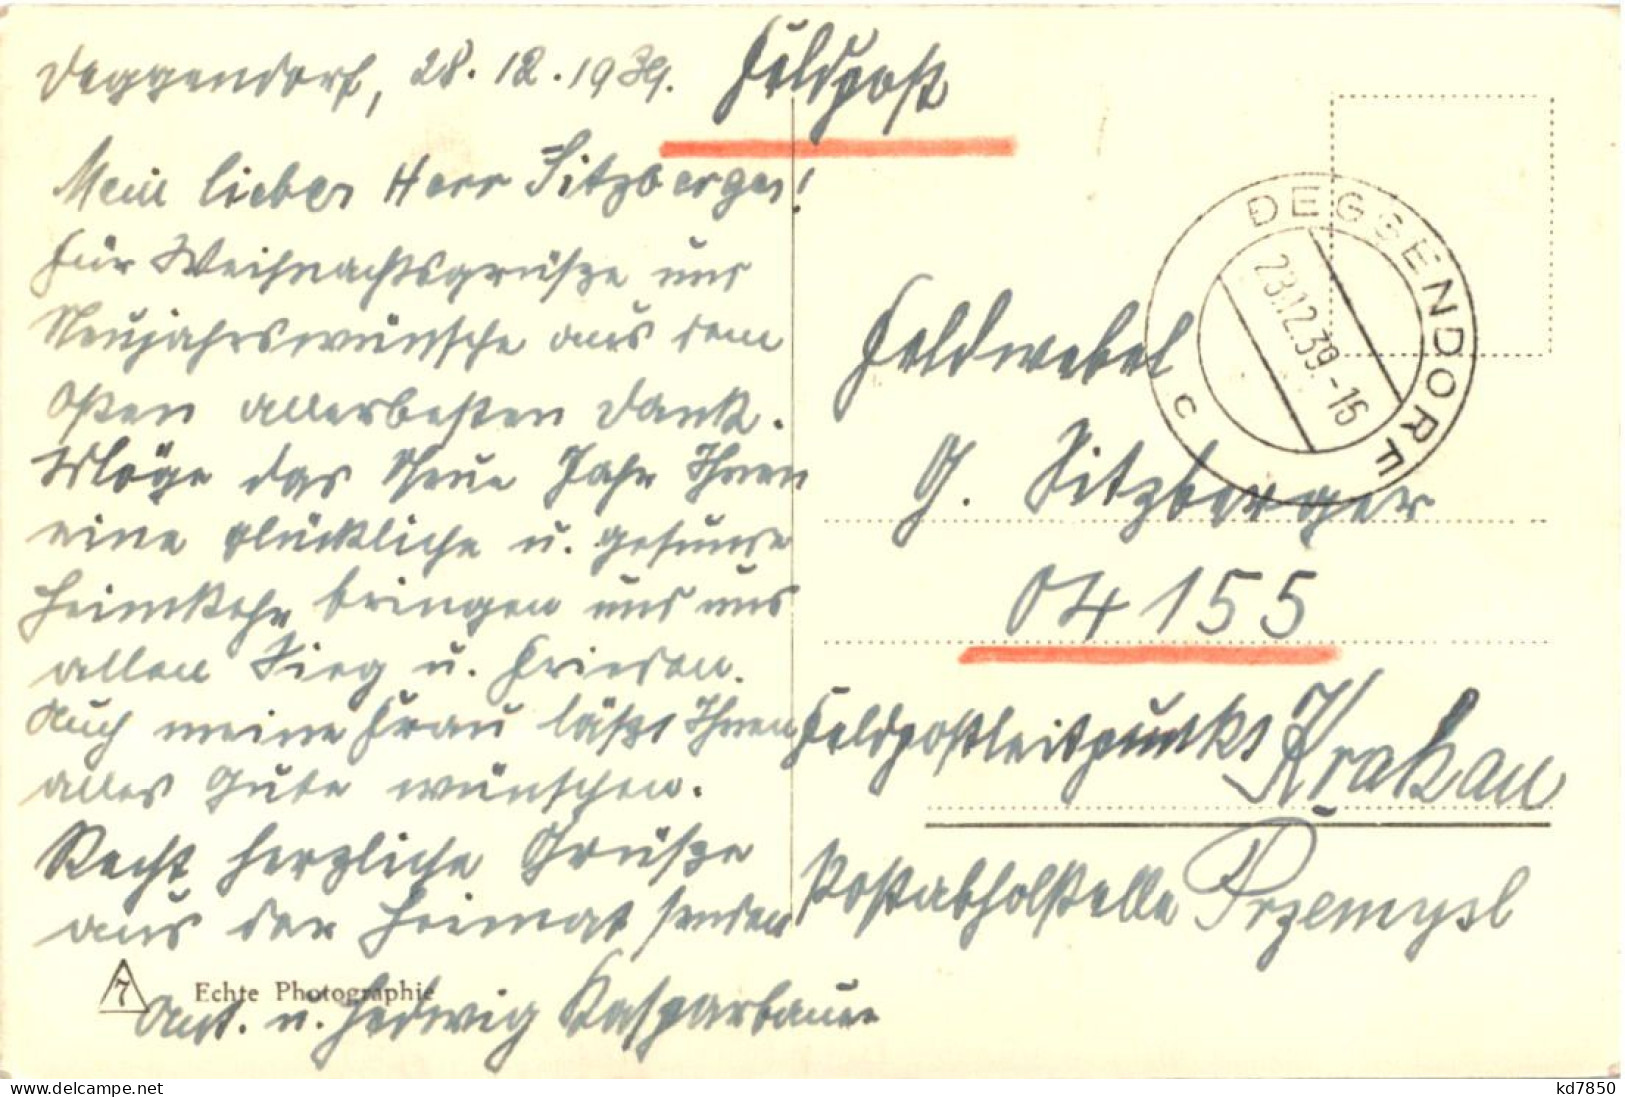 Deggendorf, 28.12.1939.
Feldpost
Mein lieber Herr Sitzberger!
Für Weihnachtsgrüße und
Neujahrswünsche aus dem
Osten allerbesten Dank.
Möge das Neue Jahr Ihnen
eine glückliche u. gesunde
Heimkehr bringen und uns
allen Sieg u. Frieden.
Auch meine Frau läßt Ihnen
alles Gute wünschen.
Recht herzliche Grüße
aus der Heimat senden
Ant. u. Hedwig Kasparbauer
7 Echte Photographie
DEGGENDORF
23.12.39.-15
c
Feldwebel
G. Sitzberger
04155
Feldpostleitpunkt Krakau
Postabholstelle Przemysl
kd7850
https://www.delcampe.net